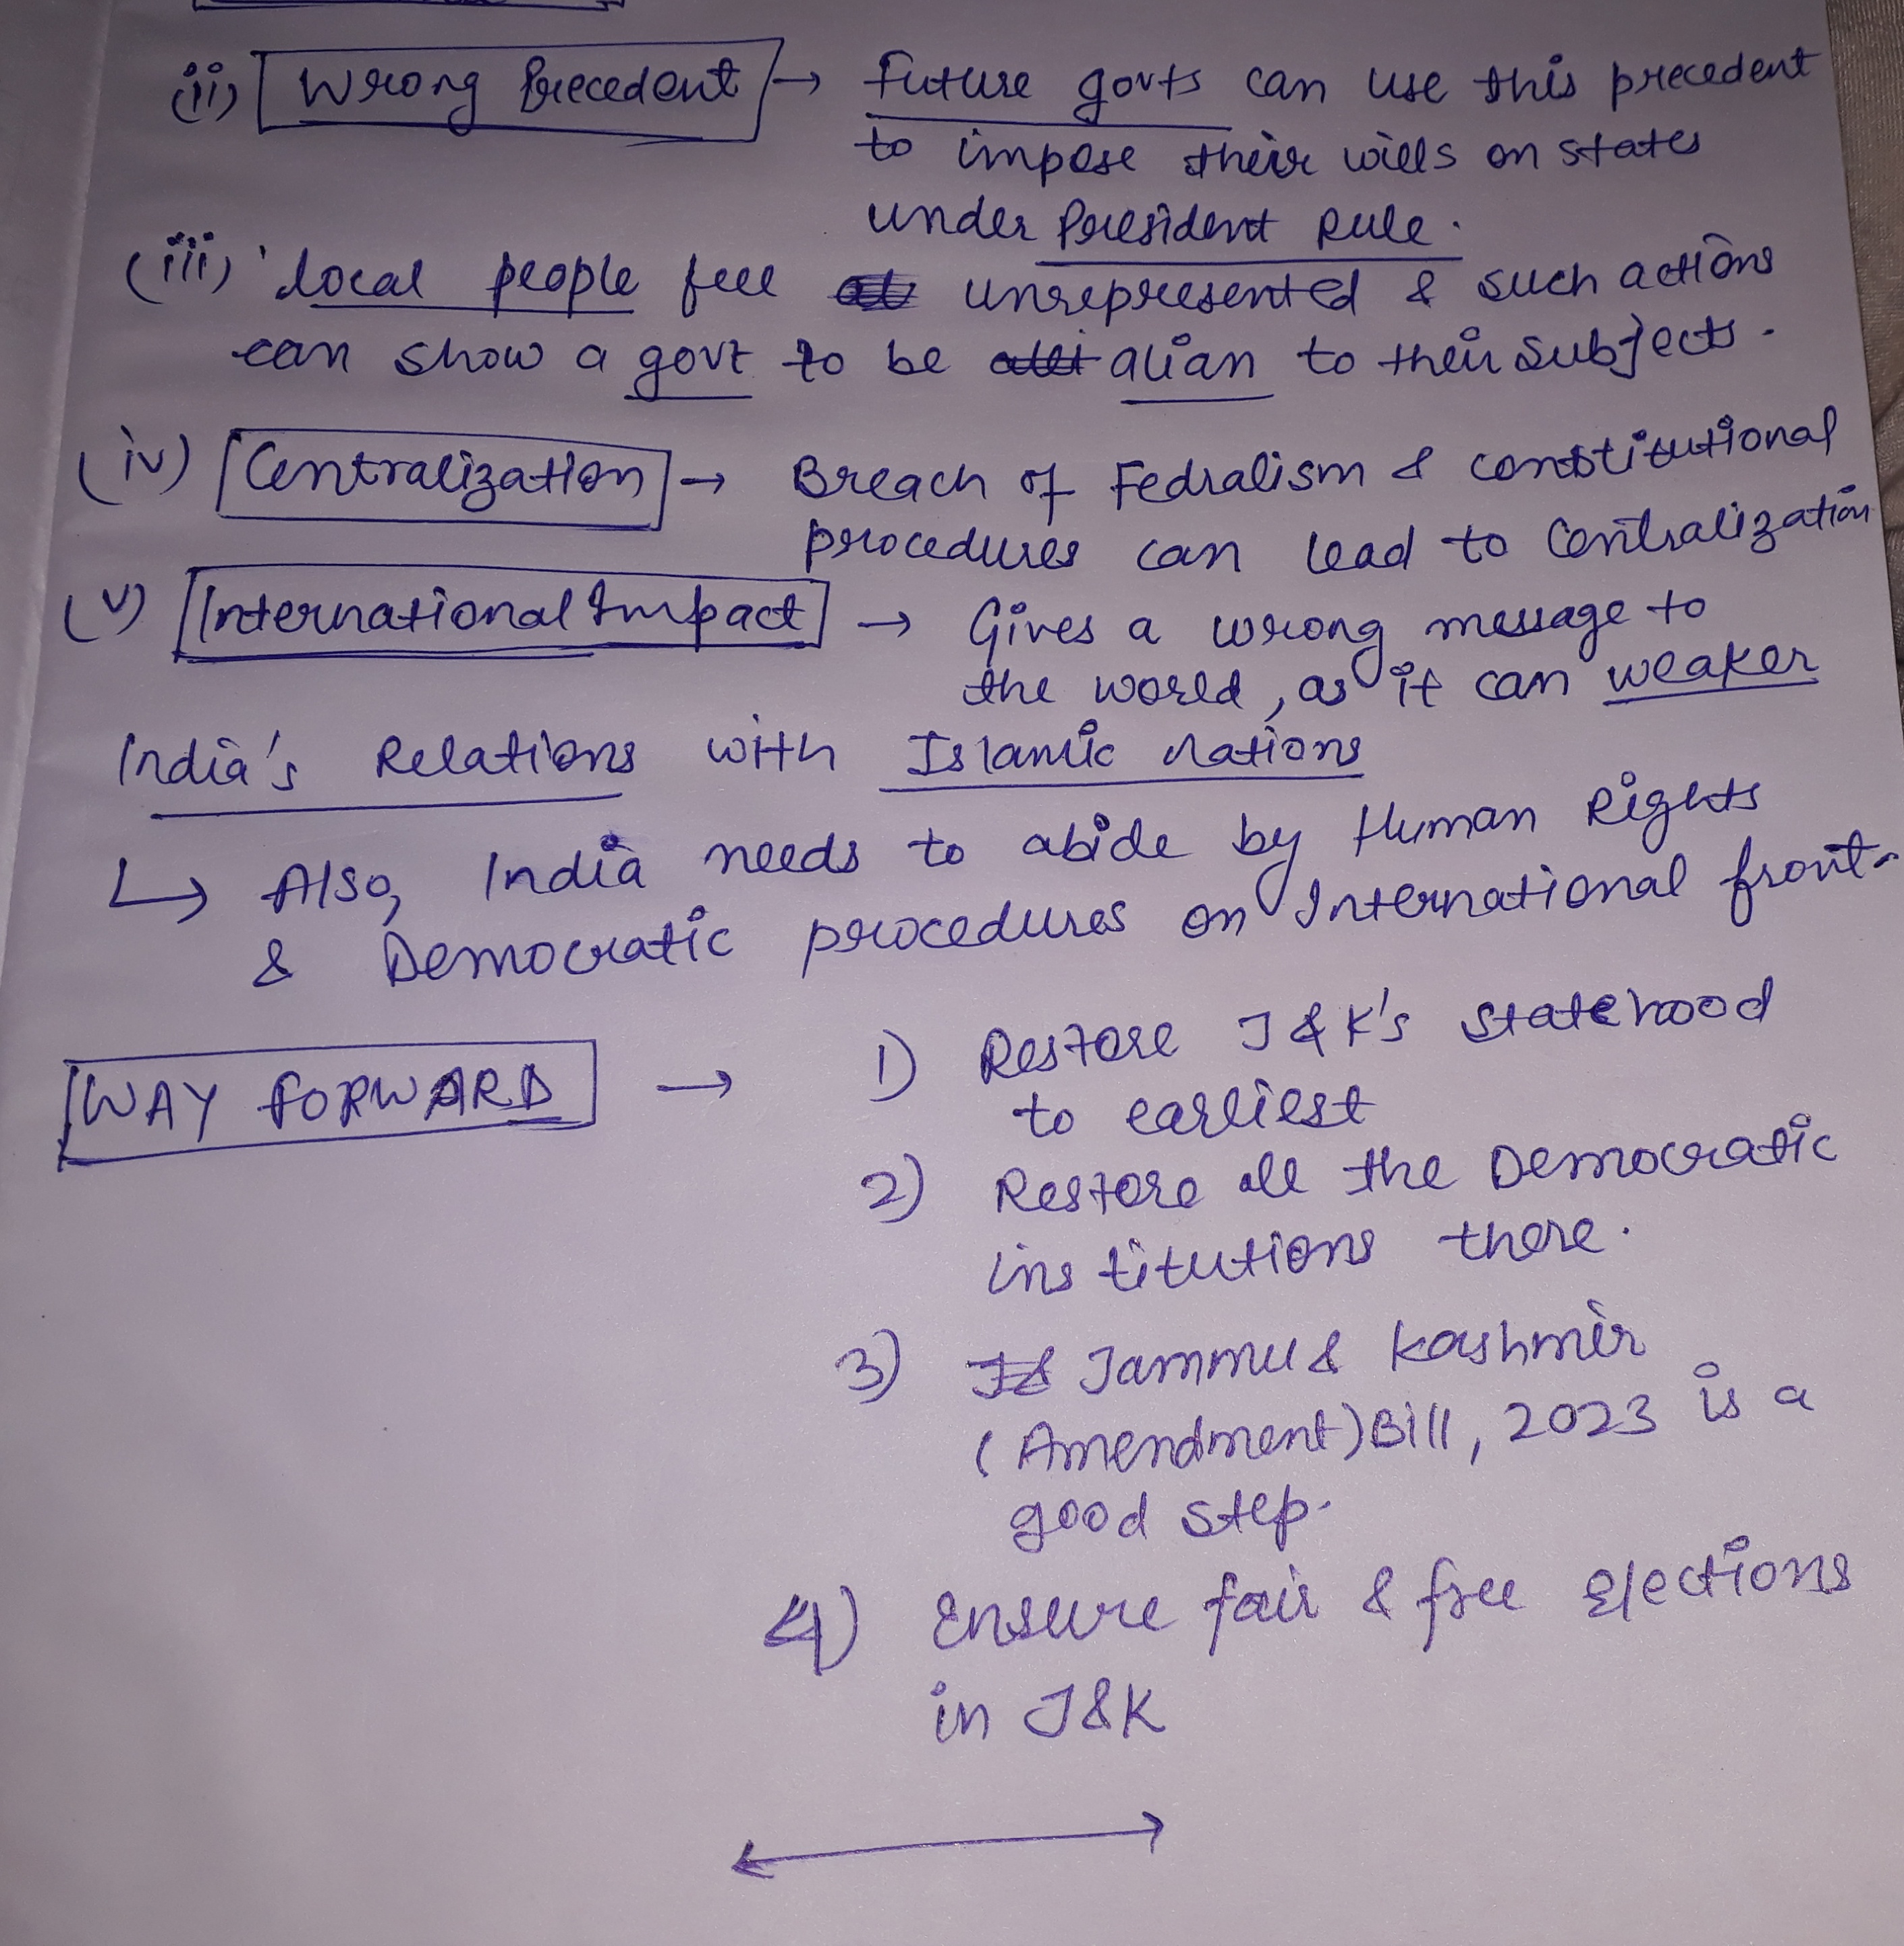 (ii) Wrong Precedent → Future govts can use this precedent
to impose their wills on states
under President Rule.
(iii) Local people feel unrepresented & such actions
can show a govt to be alian to their subjects.
(iv) Centralization → Breach of Fedralism & constitutional
procedures can lead to Centralization
(v) International Impact → Gives a wrong message to
the world, as it can weaker
India's Relations with Islamic Nations
↳ Also, India needs to abide by Human Rights
& Democratic procedures on International front.
WAY FORWARD → 1) Restore J&K's statehood
to earliest
2) Restore all the Democratic
institutions there.
3) Jammu & Kashmir
(Amendment) Bill, 2023 is a
good step.
4) Ensure fair & free elections
in J&K